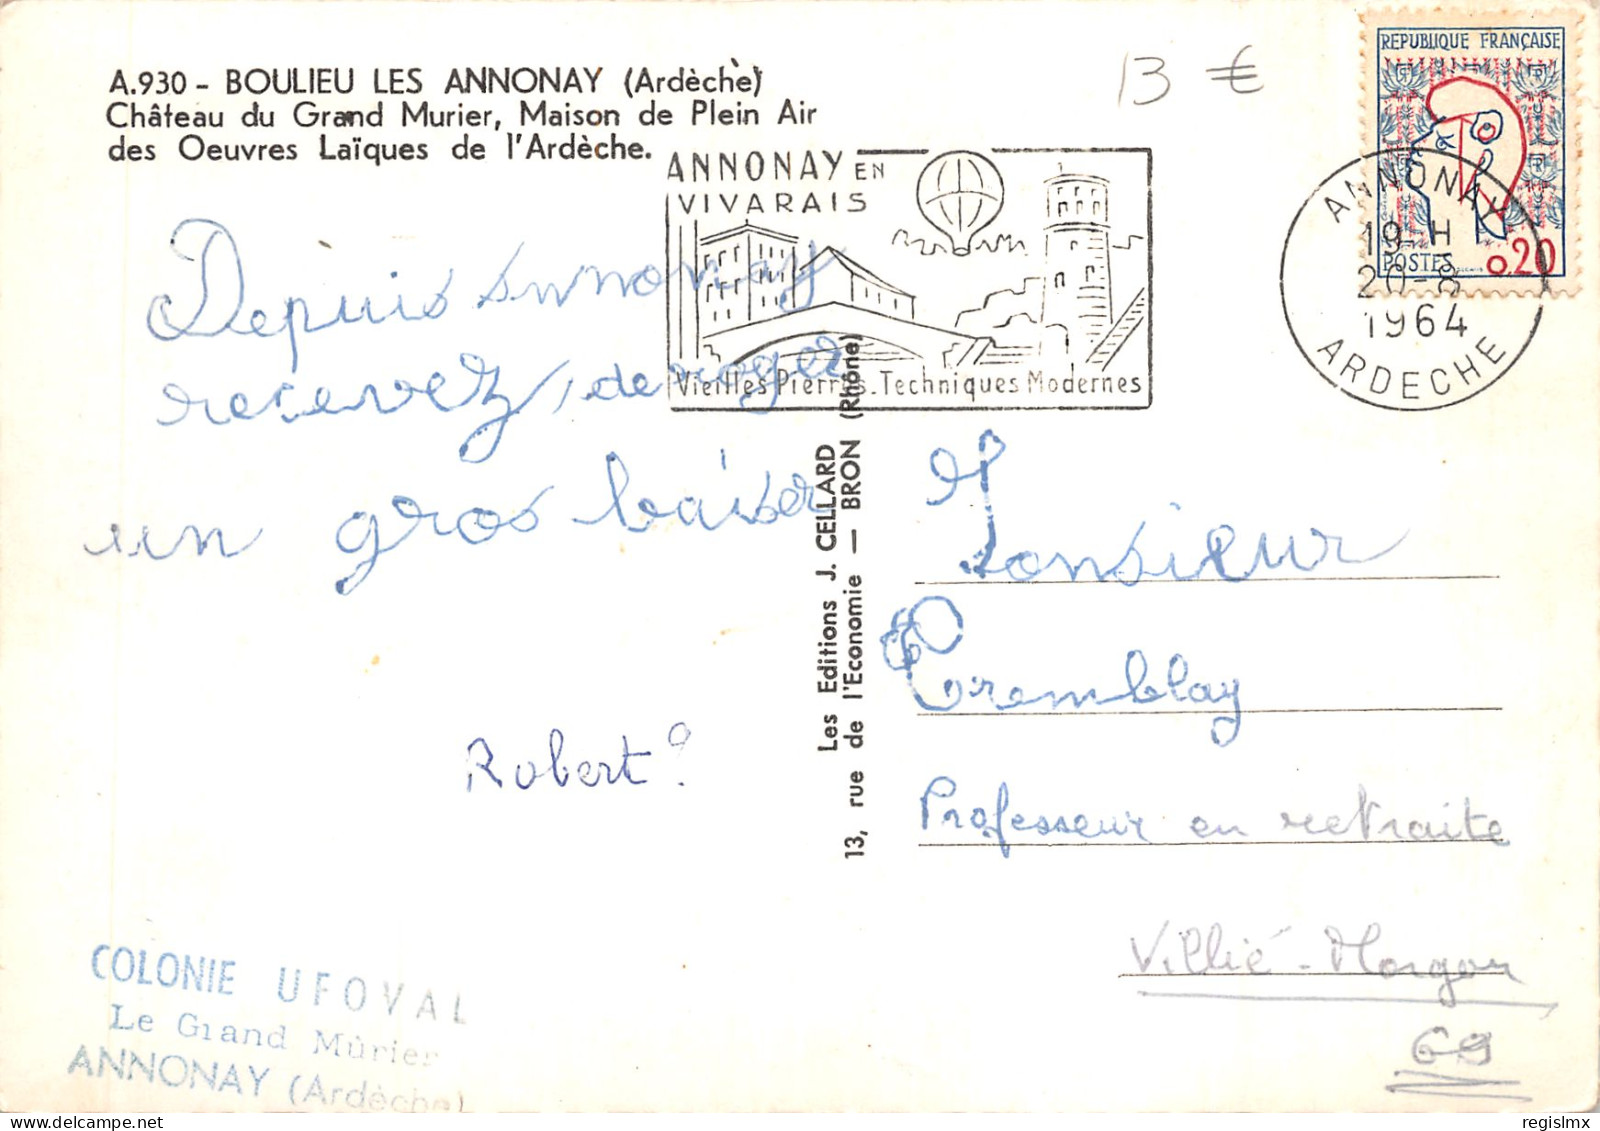 A.930 - BOULIEU LES ANNONAY (Ardèche)
Château du Grand Murier, Maison de Plein Air
des Oeuvres Laïques de l'Ardèche.
13 €
REPUBLIQUE FRANÇAISE
POSTES 0,20
ANNONAY
19 H
20-8
1964
ARDECHE
ANNONAY EN
VIVARAIS
Vieilles Pierres. Techniques Modernes
Depuis Annonay
recevez, de roger
un gros baiser
Robert ?
Les Editions J. CELLARD
13, rue de l'Economie — BRON (Rhône)
Monsieur
Tremblay
Professeur en retraite
Villié-Morgon
69
COLONIE UFOVAL
Le Grand Mûrier
ANNONAY (Ardèche)
regislmx